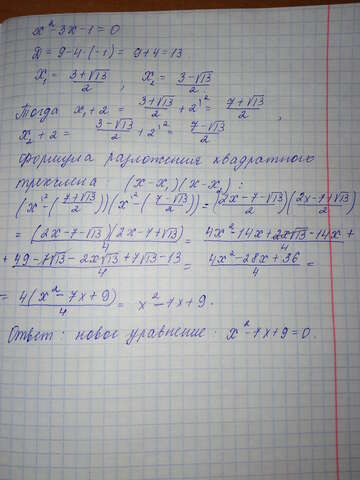 x² - 3x - 1 = 0
D = 9 - 4 · (-1) = 9 + 4 = 13
x₁ = (3+√13)/2 ; x₂ = (3-√13)/2
Тогда x₁ + 2 = (3+√13)/2 + 2^\2 = (7+√13)/2 ,
x₂ + 2 = (3-√13)/2 + 2^\2 = (7-√13)/2
Формула разложения квадратного
трехчлена : (x - x₁)(x - x₂) :
(x^\2 - ((7+√13)/2))(x^\2 - ((7-√13)/2)) = ((2x-7-√13)/2)((2x-7+√13)/2)
= ((2x-7-√13)(2x-7+√13))/4 = (4x² - 14x + 2x√13 - 14x +
+ 49 - 7√13 - 2x√13 + 7√13 - 13)/4 = (4x² - 28x + 36)/4 =
= 4(x² - 7x + 9)/4 = x² - 7x + 9 .
Ответ : новое уравнение : x² - 7x + 9 = 0 .